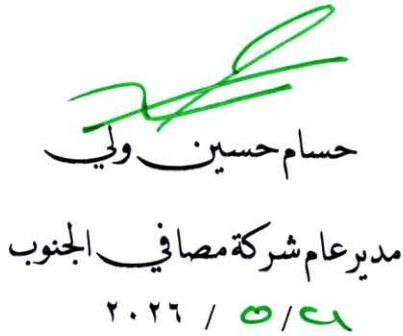 حسام حسين ولي
مدير عام شركة مصافي الجنوب
٢١/٥/٢٠٢٦